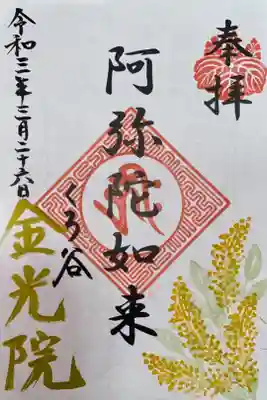 奉拝
阿弥陀如来
くろ谷
金光院
令和二年三月二十六日